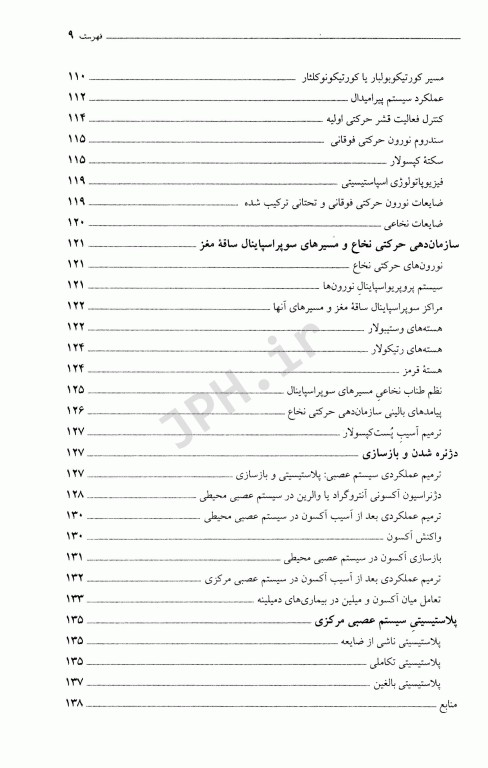 فهرست ۹
مسیر کورتیکوبولبار یا کورتیکونوکلئار ۱۱۰
عملکرد سیستم پیرامیدال ۱۱۲
کنترل فعالیت قشر حرکتی اولیه ۱۱۴
سندروم نورون حرکتی فوقانی ۱۱۵
سکتهٔ کپسولار ۱۱۵
فیزیوپاتولوژی اسپاستیسیتی ۱۱۹
ضایعات نورون حرکتی فوقانی و تحتانی ترکیب شده ۱۱۹
ضایعات نخاعی ۱۲۰
سازمان‌دهی حرکتی نخاع و مسیرهای سوپراسپاینال ساقهٔ مغز ۱۲۱
نورون‌های حرکتی نخاع ۱۲۱
سیستم پروپریواسپاینالِ نورون‌ها ۱۲۱
مراکز سوپراسپاینال ساقهٔ مغز و مسیرهای آنها ۱۲۲
هسته‌های وستیبولار ۱۲۲
هسته‌های رتیکولار ۱۲۴
هستهٔ قرمز ۱۲۴
نظم طناب نخاعیِ مسیرهای سوپراسپاینال ۱۲۵
پیامدهای بالینی سازمان‌دهی حرکتی نخاع ۱۲۶
ترمیم آسیبِ پُست‌کپسولار ۱۲۷
دژنره شدن و بازسازی ۱۲۷
ترمیم عملکردی سیستم عصبی: پلاستیسیتی و بازسازی ۱۲۷
دژنراسیون آکسونی آنتروگراد یا والرین در سیستم عصبی محیطی ۱۲۸
ترمیم عملکردی بعد از آسیب آکسون در سیستم عصبی محیطی ۱۳۰
واکنش آکسون ۱۳۰
بازسازی آکسون در سیستم عصبی محیطی ۱۳۱
ترمیم عملکردی بعد از آسیب آکسون در سیستم عصبی مرکزی ۱۳۲
تعامل میان آکسون و میلین در بیماری‌های دمیلینه ۱۳۳
پلاستیسیتیِ سیستم عصبی مرکزی ۱۳۵
پلاستیسیتی ناشی از ضایعه ۱۳۵
پلاستیسیتی تکاملی ۱۳۵
پلاستیسیتی بالغین ۱۳۷
منابع ۱۳۸
JPH.ir